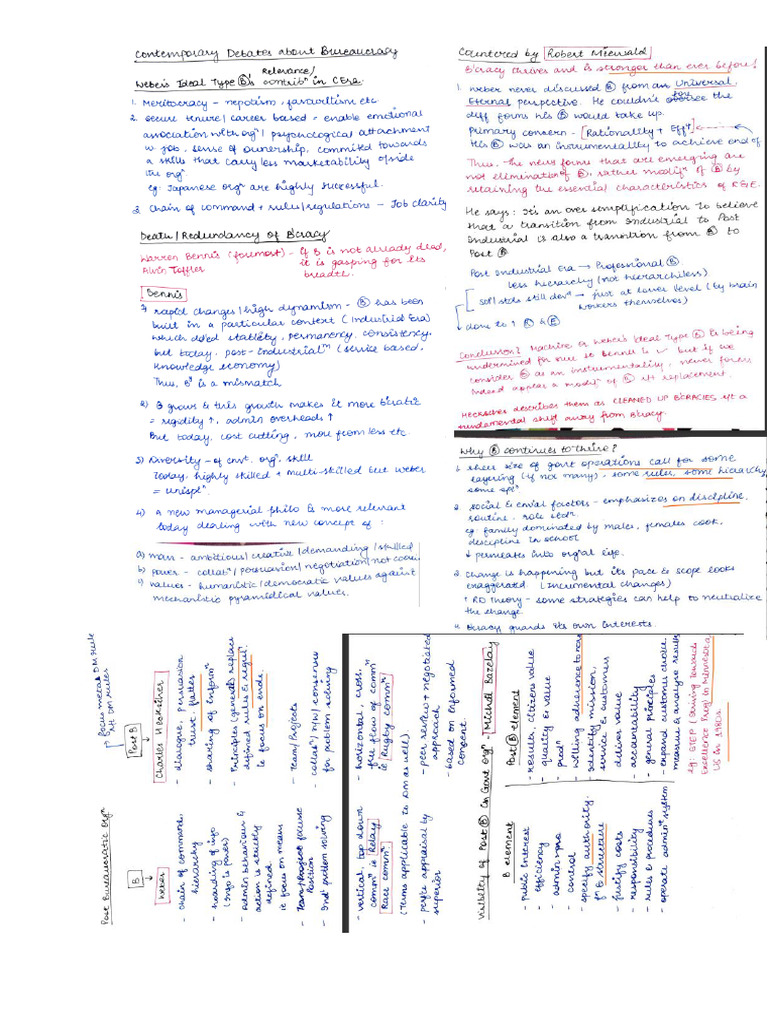 Contemporary Debates about Bureaucracy
Weber's Ideal Type Ⓑ's Relevance/ contribⁿ in CEra.
1. Meritocracy - nepotism, favouritism etc
2. secure tenure/career based = enable emotional
association with orgⁿ/ psychological attachment
w job, sense of ownership, commited towards
a skills that carry less marketability o/side
the orgⁿ
eg: Japanese orgⁿ are highly successful.
3. Chain of command + rules/regulations - Job clarity
Death/Redundancy of B'cracy
Warren Bennis (foremost) - If B is not already dead,
Alvin Toffler it is gasping for its
breath.
Bennis
1) rapid changes/high dynamism - Ⓑ has been
built in a particular context (Industrial Era)
which dded stability, permanency, consistency.
but today, post-industrialⁿ (service based,
knowledge economy)
Thus, Bⁿ is a mismatch
2) B grows & this growth makes it more B'cratic
= rigidity ↑, admin overheads ↑
But today, cost cutting, more from less etc.
3) Diversity - of envt. orgⁿ, skill
Today, highly skilled + multi-skilled but weber
4) a new managerial philo is more relevant
today dealing with new concept of :
a) man - ambitious/creative/demanding/skilled
b) power - collabⁿ/persuasion/negotiation/not coerciⁿ
c) values - humanistic/democratic values against
mechanistic pyramidical values.
Countered by Robert Miewald
B'cracy thrives and is stronger than ever before!
1. weber never discussed Ⓑ from an Universal
Eternal perspective. He couldn't foresee the
diff forms his Ⓑ would take up.
primary concern - [Rationality + Effʸ]
His Ⓑ was an instrumentality to achieve end.
Thus, the new forms that are emerging are
not elimination of Ⓑ, rather modifⁿ of Ⓑ by
retaining the essential characteristics of R&E.
He says: It's an over simplification to believe
that a transition from Industrial to Post
Industrial is also a transition from Ⓑ to
Post Ⓑ
Post Industrial Era → Professional Ⓑ
less hierarchy (not hierarchiless)
self stds still devⁿ → just at lower level (by brain
workers themselves)
done to ↑ Ⓡ & Ⓔ
Conclusion? Machine or Weber's Ideal Type Ⓑ is being
undermined for sure st Bennis is ✓ but if we
consider Ⓑ as an instrumentality, newer forms
indeed appear a modifⁿ of Ⓑ r/t replacement.
Heckscher describes them as CLEANED UP B'CRACIES r/t a
fundamental shift away from B'cracy.
Why Ⓑ continues to thrive?
1. sheer size of govt operations call for some
layering (if not many), some rules, some hierarchy
some spⁿ
2. social & envtal factors - emphasizes on discipline,
routine, role
eg: family dominated by males, females cook,
discipline in school
↓ permeates into orgⁿal life.
3. Change is happening but its pace & scope looks
exaggerated. (Incremental changes)
+ RD Theory - some strategies can help to neutralize
the change
4. B'cracy guards its own interests.
Post Bureaucratic Orgⁿ
B
↓
Weber
- chain of command,
hierarchy
- hoarding of info
(info is power)
- admin behaviour &
action is strictly
defined
ie focus on means
- Team/Project focuse
Position
- Indˡ problem solving
- vertical, top down
commⁿ ie Relay
Race commⁿ
(Terms applicable to DM as well)
- people appraisal by
superior
→ focus meta DM rule
r/t DM rules
Post B
↓
Charles Heckscher
- dialogue, persuasion
trust, flatter
- sharing of informⁿ
- Principles (general) replace
defined rules & regulⁿ.
ie focus on ends.
- Team/Projects
- collabⁿ/N/W/consensus
for problem solving
- horizontal, cross,
free flow of commⁿ
ie Rugby commⁿ
- peer review + negotiated
approach
- based on informed
consent
Visibility of Post Ⓑ in Govt Orgⁿ - Michael Barzelay
B element
- public interest
- efficiency
- control
- specify authority.
for & structure
- justify costs
- responsibility
- rules & procedures
- operate adminⁿ system
Post Ⓑ element
- results, citizen value
- quality & value
- prodⁿ
- willing adherence to norms
- identify mission,
service & customers
- deliver value
- accountability
- general principles
- expand customer choice,
measure & analyse results
eg: STEP (Striving towards
Excellence Prog) in Minnesota,
US in 1980s.